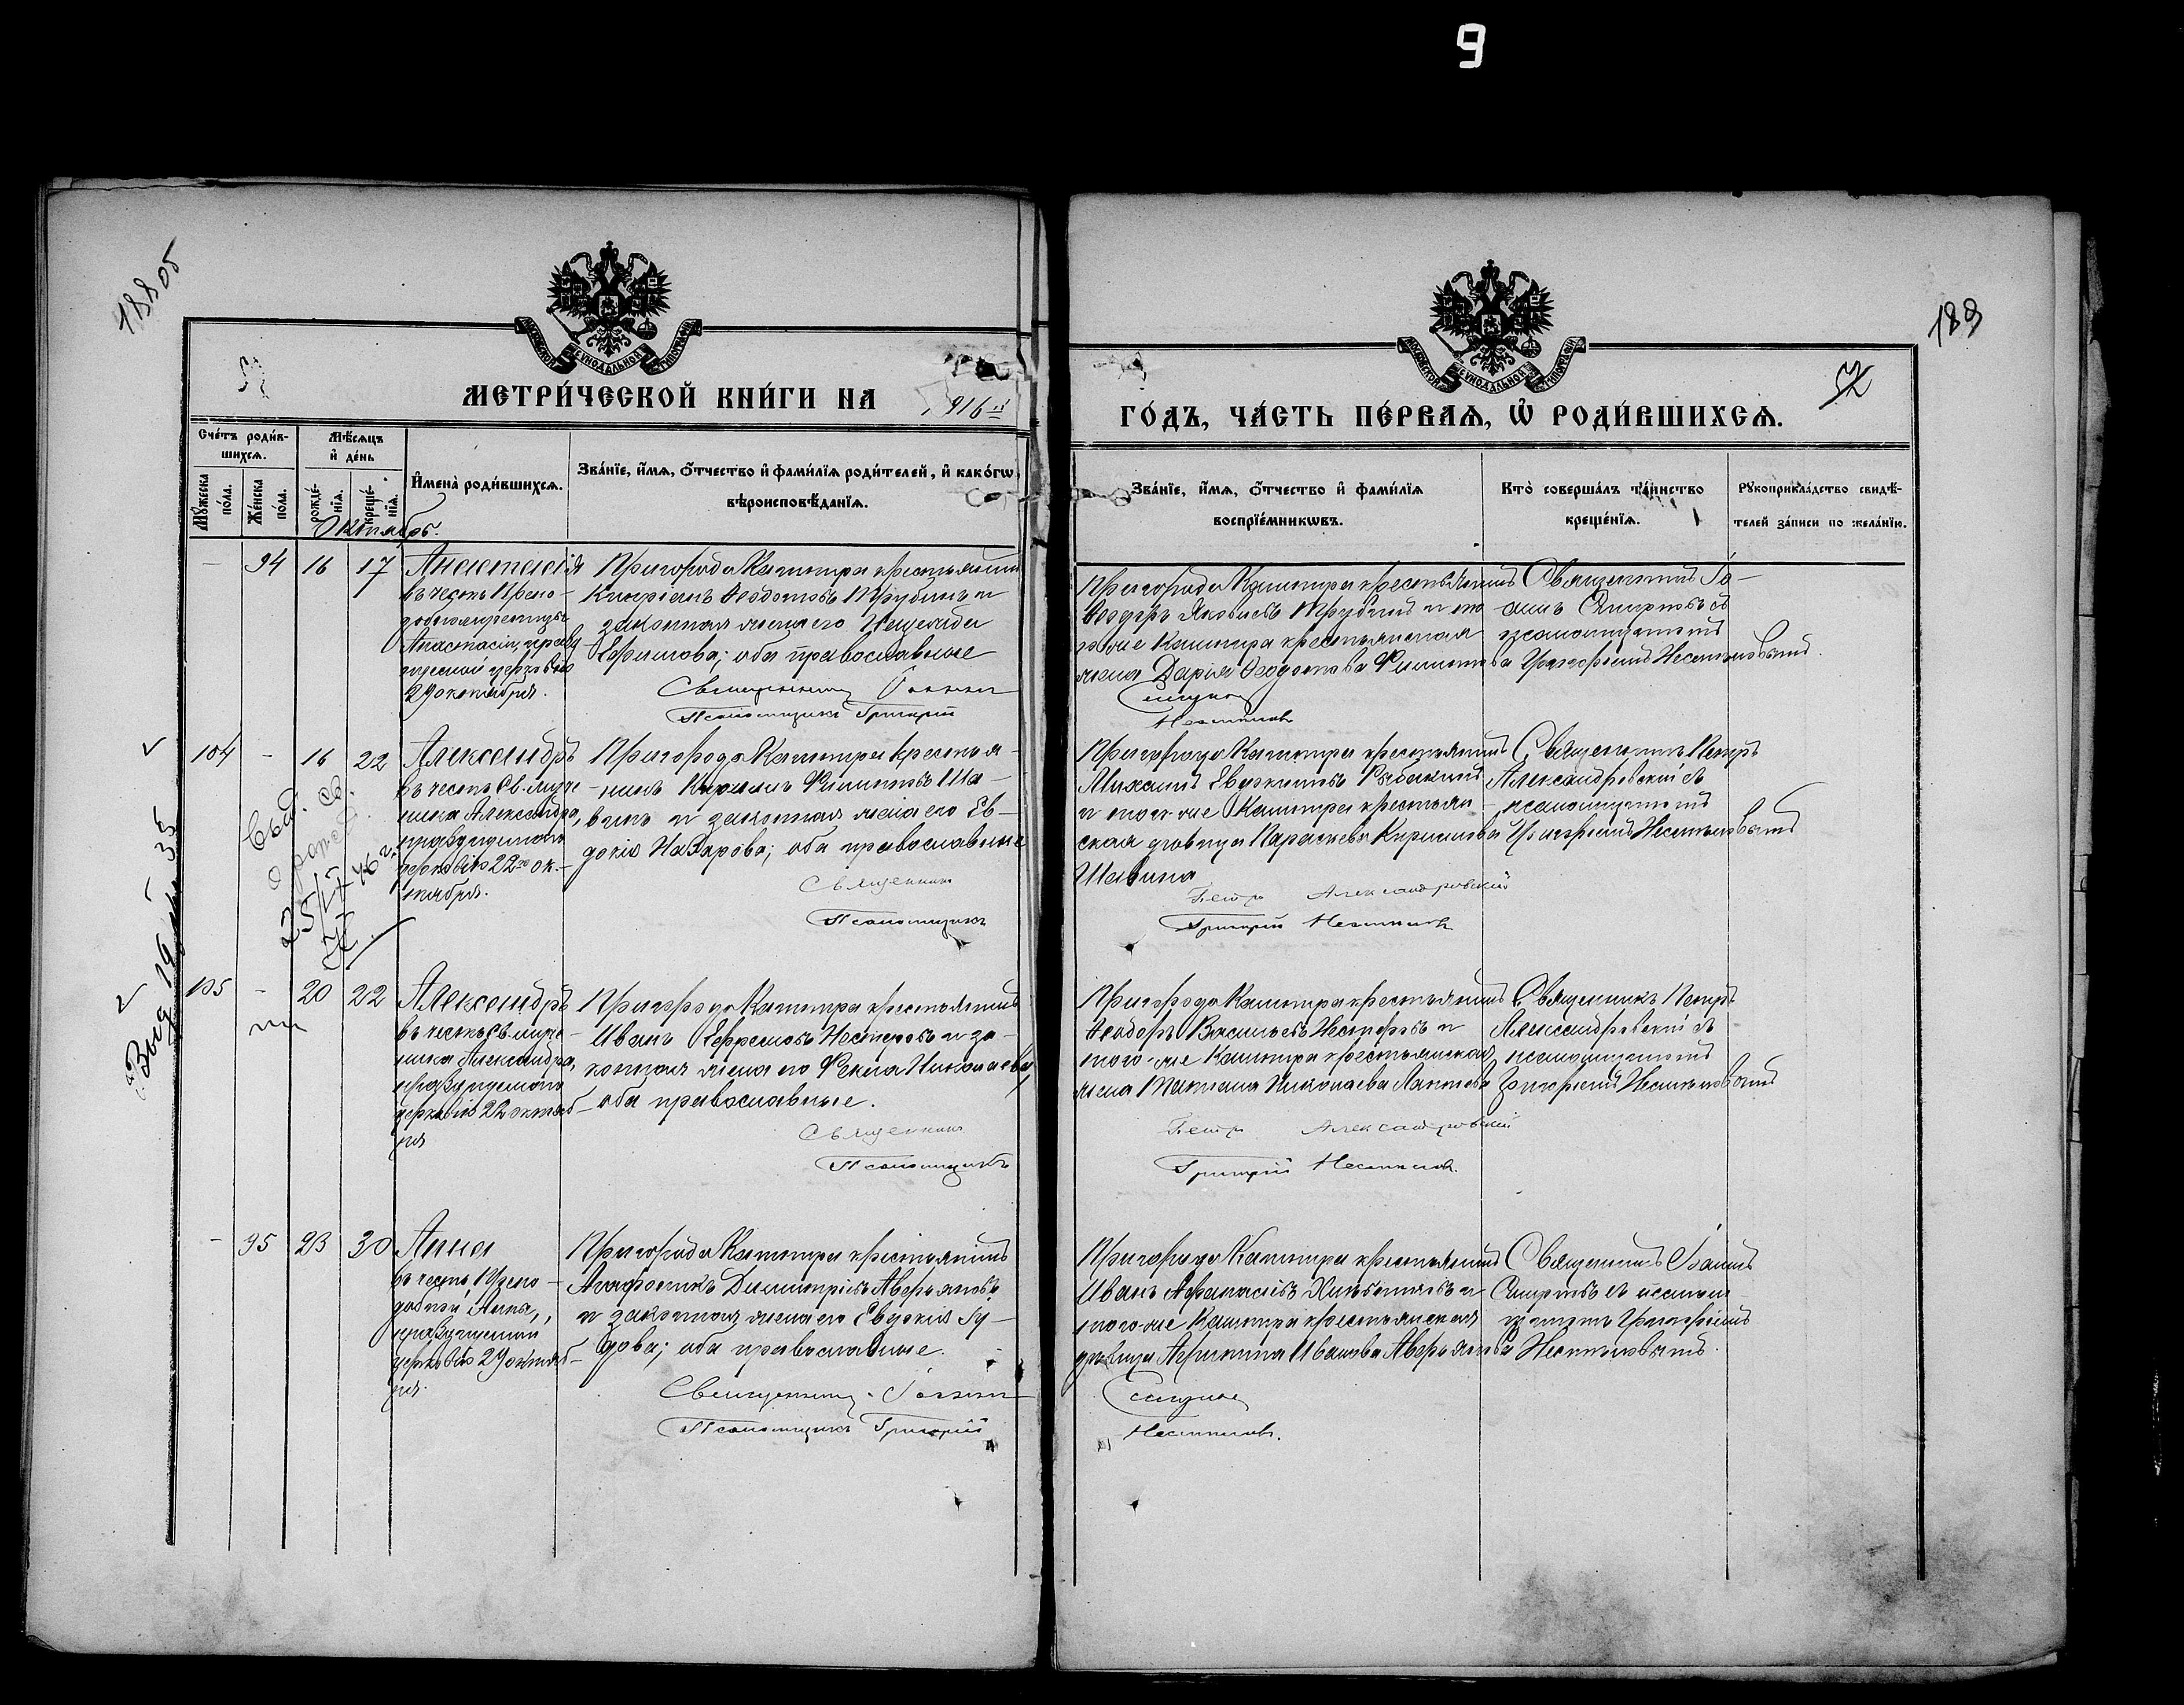 9
188 об
189
МЕТРИ́ЧЕСКОЙ КНИ́ГИ НА 1916 й
ГО́ДЪ, ЧА́СТЬ ПЕ́РВАѦ, Ѡ РОДИ́ВШИХСѦ.
52
Сче́тъ роди́в-
шихсѧ.
Мѣ́сѧцъ
и҆ де́нь
Мꙋ́жеска
по́ла.
Же́нска
по́ла.
рожде́-
нїѧ.
креще́-
нїѧ.
И҆мена̀ роди́вшихсѧ.
Зва́нїе, и҆́мѧ, ѻ҆́тчество и҆ фами́лїѧ роди́телей, и҆ како́гѡ
вѣроисповѣ́данїѧ.
Зва́нїе, и҆́мѧ, ѻ҆́тчество и҆ фами́лїѧ
воспрїе́мникѡвъ.
Кто̀ соверша́лъ та́инство
креще́нїѧ.
Рꙋкоприкла́дство свидѣ́-
телей за́писи по жела́нїю.
Октябрь.
— 94 16 17
Анастасія
въ честь Препо-
добномученицы
Анастасіи, празд
церковью
29 октября.
Пригорода Каштпра крестьянинъ
Кипріанъ Ѳеодотовъ Трубинъ и
законная жена его
Ефимова; оба православные
Священникъ Іоаннъ
Псаломщикъ Григорій
Пригорода Каштпра крестьянинъ
Ѳеодоръ Яковлевъ Трубинъ и то
го-же Каштпра крестьянская
жена Дарія Ѳеодотова Филиппова
Смирнов
Несмѣлов
Священникъ Іо-
аннъ Смирновъ съ
псаломщикомъ
Григоріемъ Несмѣловымъ.
104 - 16 22
Александръ
въ честь Св. муче
ника Александра,
празднуемаго
церковію 22го ок-
тября.
Пригорода Каштпра крестья-
нинъ Кириллъ Филипповъ Ша-
винъ и законная жена его Ев-
докія Назарова; оба православные
Священникъ
Псаломщикъ
Пригорода Каштпра крестьянинъ
Михаилъ Евдокимовъ Рыбакинъ
и того-же Каштпра крестьян-
ская дѣвица Параскева Кириллова
Шавина
Петр Александровскій
Григорій Несмѣлов
Священникъ Петръ
Александровскій съ
псаломщикомъ
Григоріемъ Несмѣловымъ
Выд. св.
о рожд.
25/IV 46 г.
105 - 20 22
Александръ
въ честь св. муче-
ника Александра,
празднуемаго
церковію 22 октяб-
ря
Пригорода Каштпра крестьянинъ
Иванъ Ефремовъ Нестеровъ и за-
конная жена его Ѳекла Николаева
оба православные.
Священникъ
Псаломщикъ
Пригорода Каштпра крестьянинъ
Ѳеодоръ Васильевъ Нестеровъ и
того-же Каштпра крестьянская
жена Татіана Николаева Лаптева
Петр Александровскій
Григорій Несмѣлов.
Священникъ Петръ
Александровскій съ
псаломщикомъ
Григоріемъ Несмѣловымъ
- 95 23 30
Анна
въ честь Препо-
добной Анны,
празднуемой
церковію 29 октяб-
ря.
Пригорода Каштпра крестьянинъ
Агафоникъ Димитріевъ Аверьяновъ
и законная жена его Евдокія Гу-
дова; оба православные.
Священникъ Іоаннъ
Псаломщикъ Григорій
Пригорода Каштпра крестьянинъ
Иванъ Афанасіевъ и
того-же Каштпра крестьянская
дѣвица Агрипина Иванова Аверьянова
Смирнов
Несмѣлов.
Священникъ Іоаннъ
Смирновъ съ псалом-
щикомъ Григоріемъ
Несмѣловымъ.